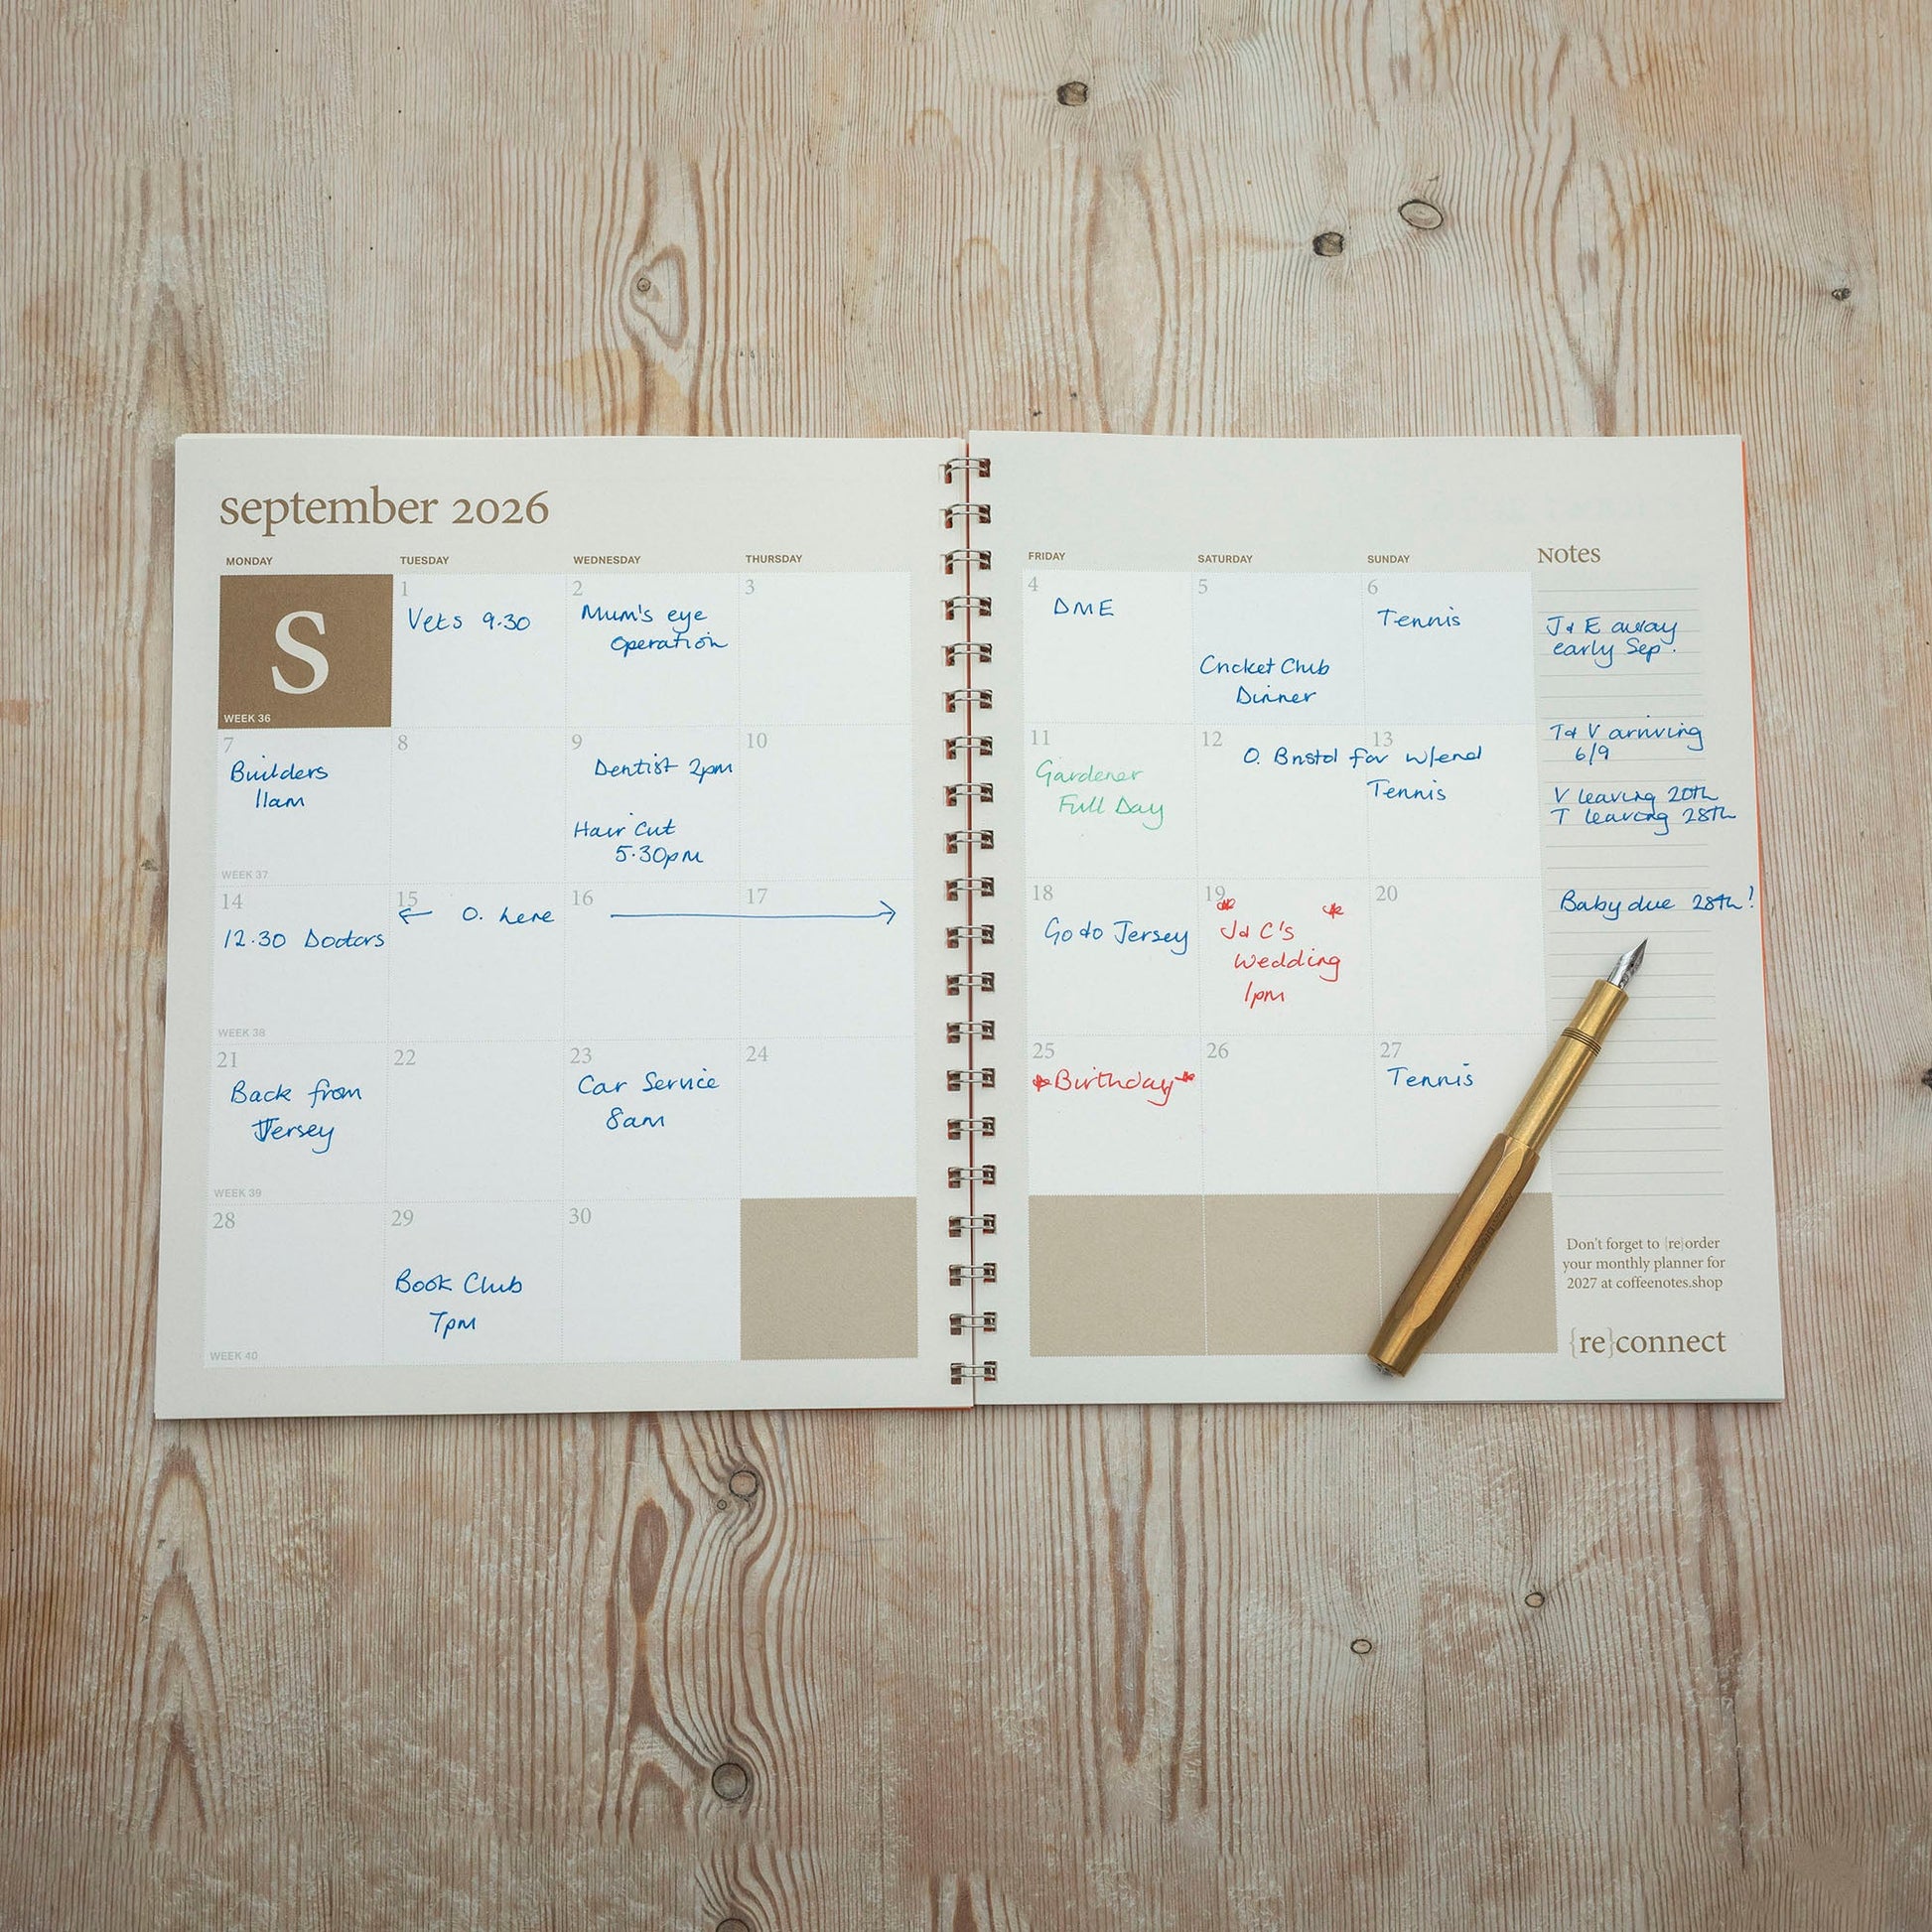 september 2026
MONDAY TUESDAY WEDNESDAY THURSDAY
FRIDAY SATURDAY SUNDAY Notes
S
WEEK 36
1
Vets 9.30
2
Mum's eye
operation
3
4
DME
5
Cricket Club
Dinner
6
Tennis
7
Builders
11am
WEEK 37
8
9
Dentist 2pm
Hair Cut
5.30pm
10
11
Gardener
Full Day
12
13
O. Bristol for w/end
Tennis
14
12.30 Doctors
WEEK 38
15
← O. here →
16
17
18
Go to Jersey
19
J & C's
Wedding
1pm
20
21
Back from
Jersey
WEEK 39
22
23
Car Service
8am
24
25
*Birthday*
26
27
Tennis
28
WEEK 40
29
Book Club
7pm
30
J & E away
early Sep.
T & V arriving
6/9
V leaving 20th
T leaving 28th
Baby due 28th!
Don't forget to {re}order
your monthly planner for
2027 at coffeenotes.shop
{re}connect